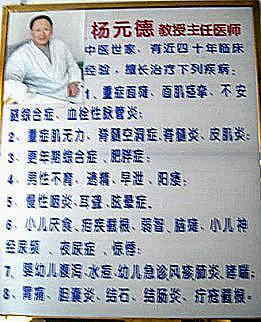 杨元德 教授主任医师
中医世家、有近四十年临床
经验,擅长治疗下列疾病:
1、重症面瘫、面肌痉挛、不安
腿综合症、血栓性脉管炎;
2、重症肌无力、脊髓空洞症、脊髓炎、皮肌炎;
3、更年期综合症、肥胖症;
4、男性不育、遗精、早泄、阳痿;
5、慢性咽炎、耳聋、眩晕症;
6、小儿厌食、疟疾截根、弱智、脑瘫、小儿神
经尿频、夜尿症、惊悸;
7、婴幼儿腹泻、水痘、幼儿急诊风疹肺炎、哮喘;
8、胃痛、胆囊炎、结石、结肠炎、疟疾截根。